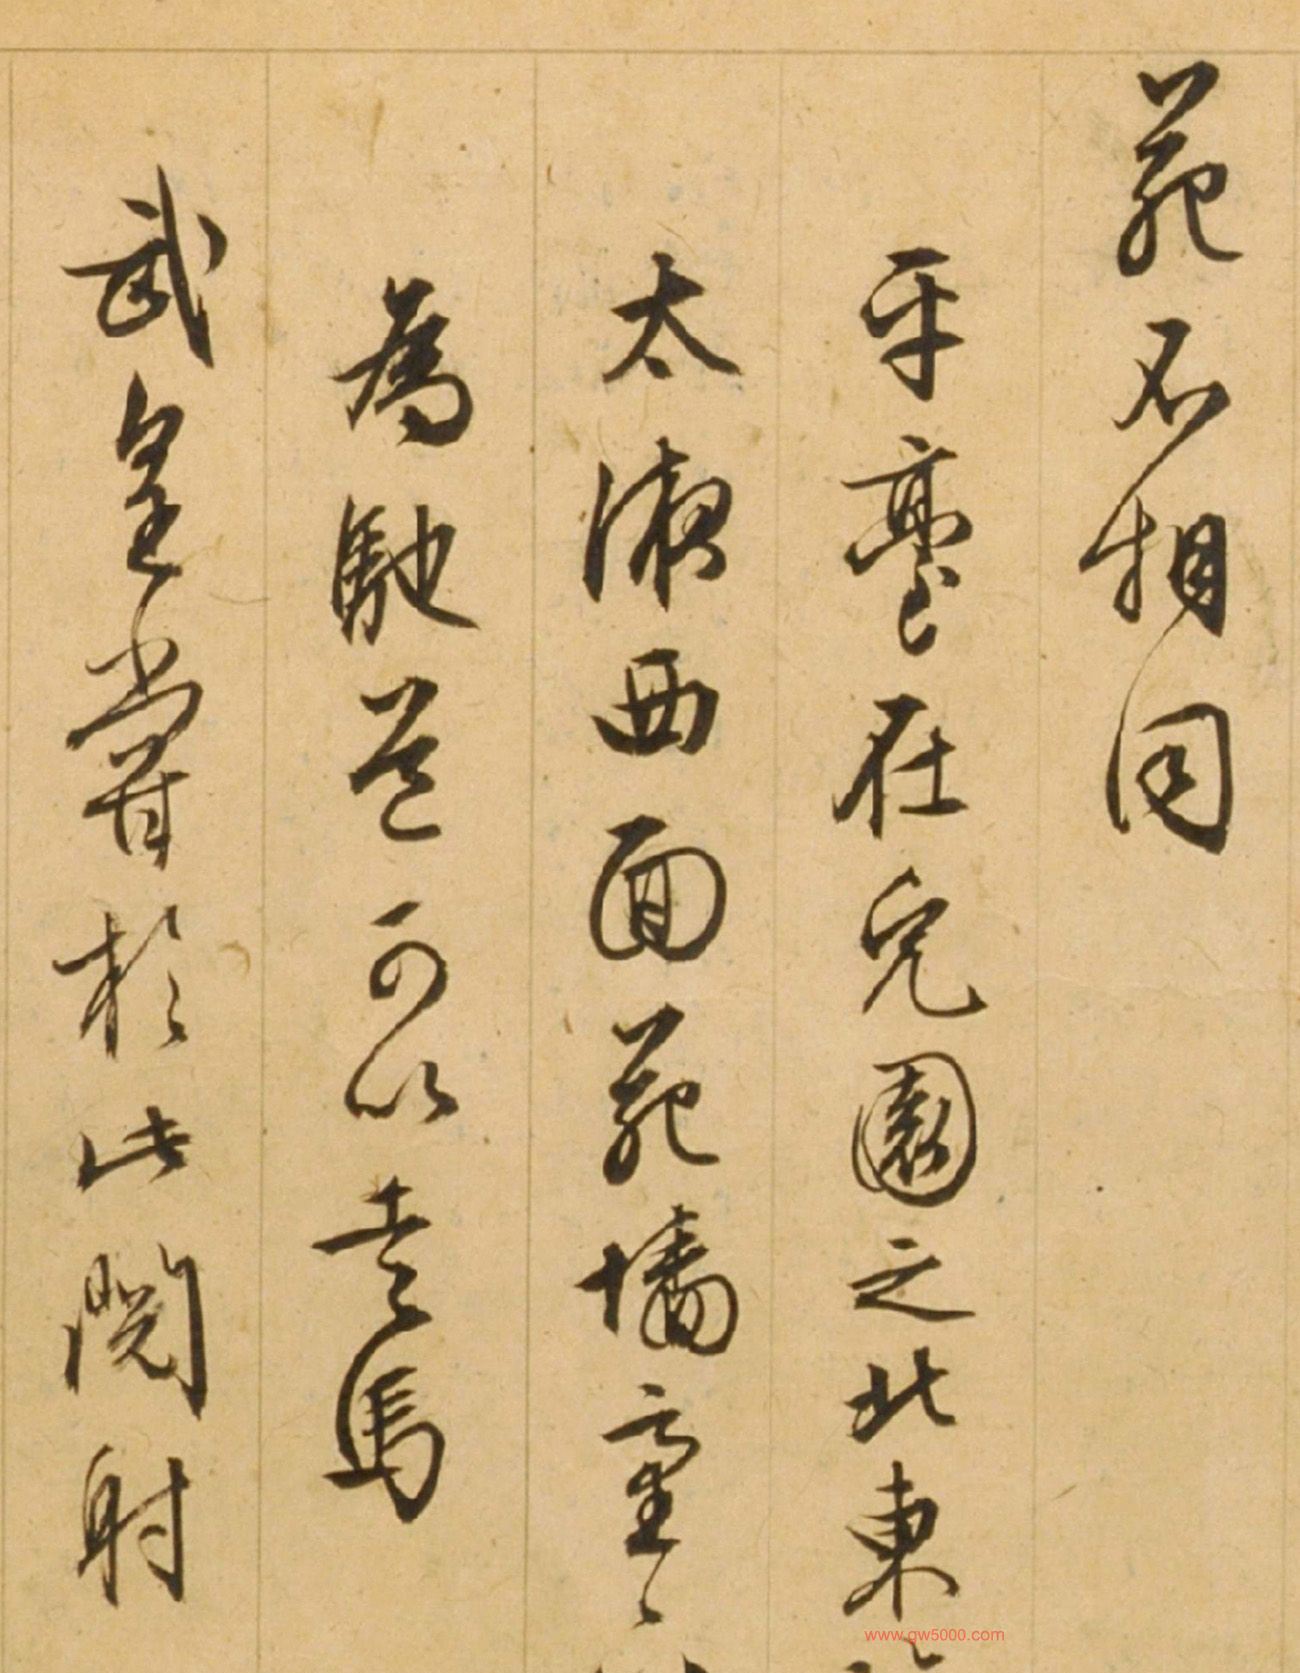 苑不相同
平臺在兔園之北東
太液西面苑墻臺下
為馳道可以走馬
武皇嘗於此閱射
www.gw5000.com